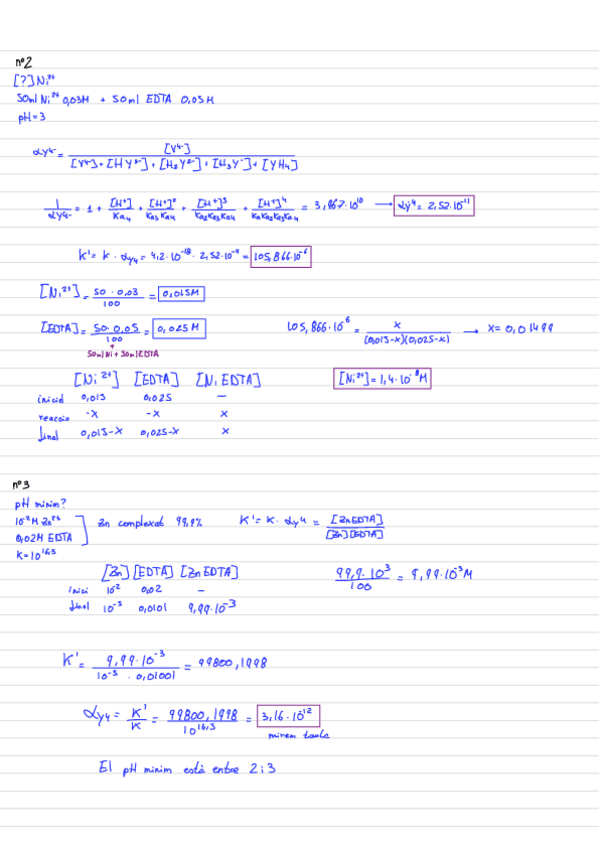 nº2
[?] Ni²⁺
50ml Ni²⁺ 0,03M + 50ml EDTA 0,05M
pH=3
αY⁴⁻ = [Y⁴⁻] / [Y⁴⁻]+[HY³⁻]+[H₂Y²⁻]+[H₃Y⁻]+[YH₄]
1/αY⁴⁻ = 1 + [H⁺]/Ka₄ + [H⁺]²/Ka₃Ka₄ + [H⁺]³/Ka₂Ka₃Ka₄ + [H⁺]⁴/KaKa₂Ka₃Ka₄ = 3,967·10¹⁰ → αY⁴ = 2,52·10⁻¹¹
K' = K · αY₄ = 4,2·10⁻¹⁸ · 2,52·10⁻¹¹ = 105,866·10⁻⁶
[Ni²⁺] = 50·0,03 / 100 = 0,015M
[EDTA] = 50·0,05 / 100 = 0,025M
105,866·10⁻⁶ = x / (0,015-x)(0,025-x) → x=0,01499
50ml Ni + 50ml EDTA
[Ni²⁺] [EDTA] [Ni EDTA]
[Ni²⁺] = 1,4·10⁻⁸M
inicial 0,015 0,025 —
reaccio -x -x x
final 0,015-x 0,025-x x
nº3
pH minim?
10⁻²M Zn²⁺
0,02M EDTA
K=10¹⁶·⁵
Zn complexat 99,9%
K' = K · αY⁴ = [ZnEDTA] / [Zn][EDTA]
[Zn] [EDTA] [ZnEDTA]
inici 10⁻² 0,02 —
final 10⁻⁵ 0,0101 9,99·10⁻³
99,9·10³ / 100 = 9,99·10⁻³M
K' = 9,99·10⁻³ / 10⁻⁵ · 0,01001 = 99800,1998
αY₄ = K'/K = 99800,1998 / 10¹⁶·⁵ = 3,16·10⁻¹²
mirem taula
El pH minim està entre 2 i 3